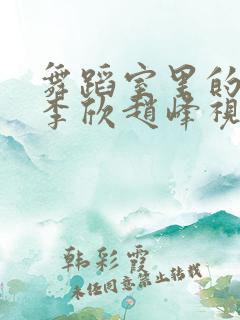 舞蹈室里的
李欣赵峰視
韩彩霞
未经同意禁止转载